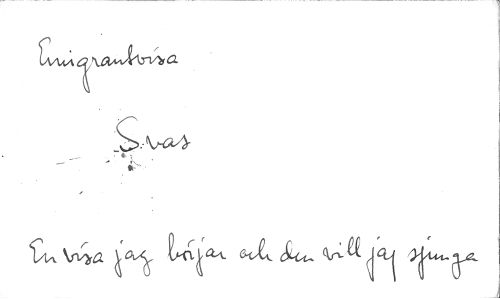 Emigrantvisa
Svas
En visa jag börjar och den vill jag sjunga